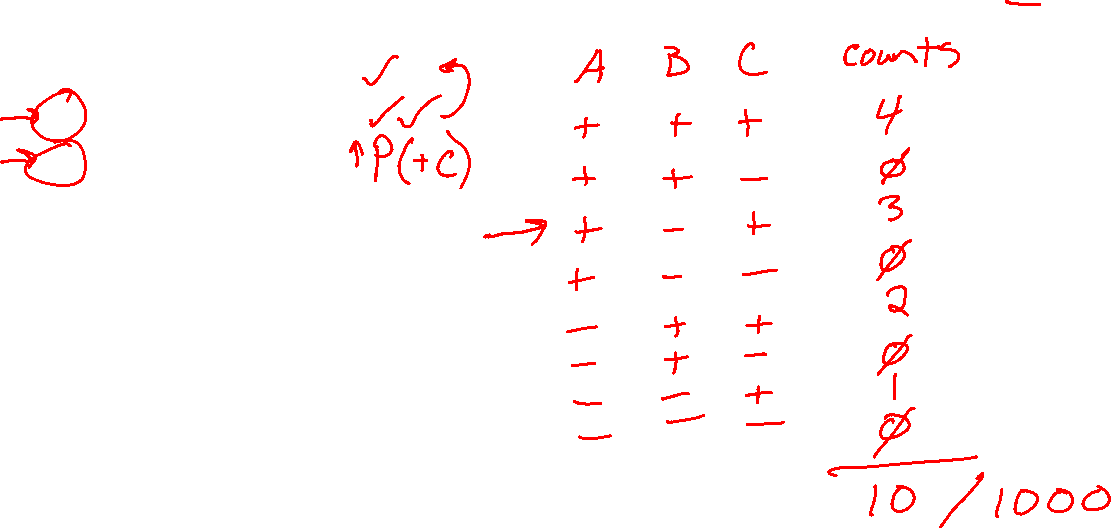 A B C counts
+ + + 4
↑P(+C)
+ + - ∅
→ + - + 3
+ - - ∅
- + + 2
- + - ∅
- - + 1
- - - ∅
10 / 1000